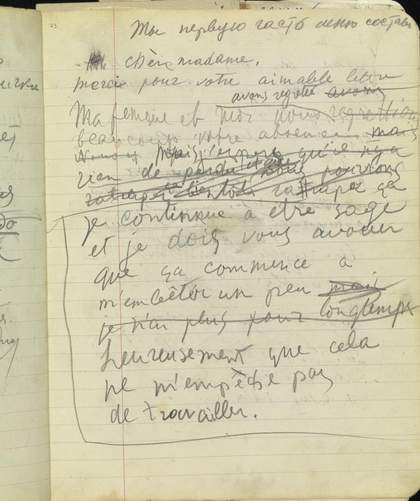 Мою первую часть меню состав
chère madame,
merci pour votre aimable lettre
avons regretté avons
Ma femme et moi nous regrettions
beaucoup votre absence mais
mais j'espère qu'il n'y a
rien de perdu et que nous pouvons
rattraper bientôt rattraper ça
je continue à être sage
et je dois vous avouer
que ça commence a
m'embêter un peu mais
je n'ai plus pour longtemps
heureusement que cela
ne m'empêche pas
de travailler.